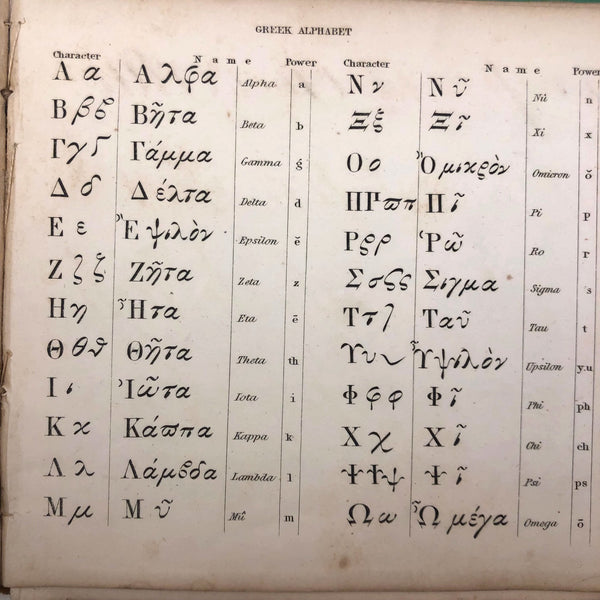 GREEK ALPHABET
Character Name Power
Α α Αλφα Alpha a
Β β ϐ Βῆτα Beta b
Γ γ Γάμμα Gamma ǵ
Δ δ Δέλτα Delta d
Ε ε Ἒ ψιλὸν Epsilon ĕ
Ζ ζ Ζῆτα Zeta z
Η η Ἦτα Eta ē
Θ θ ϑ Θῆτα Theta th
Ι ι Ἰῶτα Iota i
Κ κ Κάϖπα Kappa k
Λ λ Λάμϐδα Lambda l
Μ μ Μῦ Mû m
Character Name Power
Ν ν Νῦ Nû n
Ξ ξ Ξῖ Xi x
Ο ο Ὂμικρὸν Omicron ŏ
Π ϖ π Πῖ Pi p
Ρ ϱ ρ Ῥῶ Ro r
Σ σ ς Σιγμα Sigma s
Τ τ Ταῦ Tau t
Υ υ Υ̓͂ψιλὸν Upsilon y.u
Φ φ Φῖ Phi ph
Χ χ Χῖ Chi ch
Ψ ψ Ψῖ Psi ps
Ω ω Ὦ μέγα Omega ō